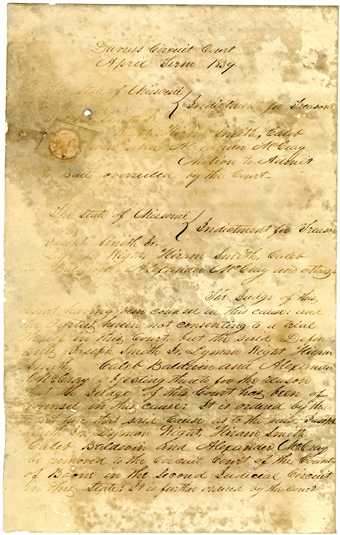 Daviess Circuit Court
April Term 1839
The State of Missouri
Indictment for Treason
Hiram Smith, Caleb
McCray
Motion to Admit
to Bail overruled by the Court.
The State of Missouri
Indictment for Treason
Joseph Smith Jr
Lyman Wight, Hiram Smith, Caleb
Alexander McCray and others
The Judge of this
Court having been counsel in this cause and
the parties herein not consenting to a trial
in this Court, but the said Defen
Joseph Smith Jr, Lyman Wight, Hiram
Caleb Baldwin and Alexander
McCray objecting thereto for the reason
Judge of this Court has been of
Counsel in this cause: It is ordered by the
that said Cause as to the said Joseph
Lyman Wight, Hiram Smith
Caleb Baldwin and Alexander McCray
be removed to the Circuit Court of the County
of Boone in the Second Judicial Circuit
in this State: It is further ordered by the Court